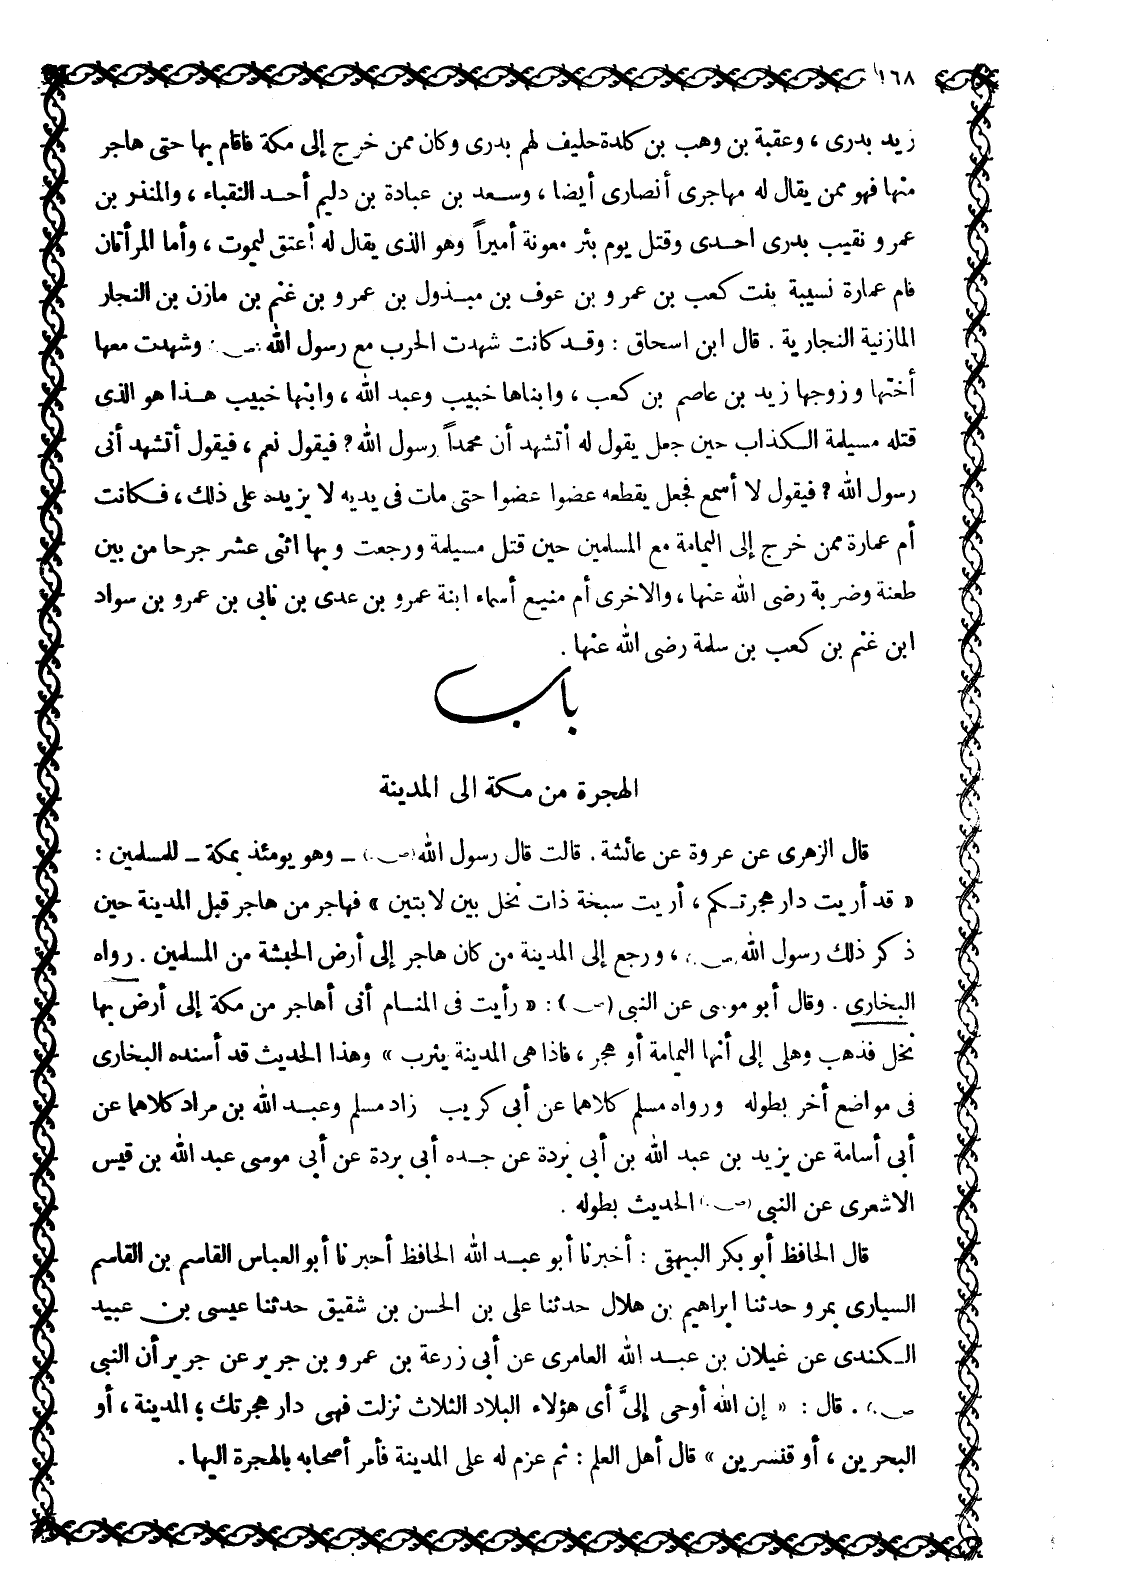 ١٦٨
زيد بدرى ، وعقبة بن وهب بن كلدة حليف لهم بدرى وكان ممن خرج إلى مكة فاقام بها حتى هاجر
منها فهو ممن يقال له مهاجرى أنصارى أيضا ، وسعد بن عبادة بن دليم أحد النقباء ، والمنذر بن
عمرو نقيب بدرى احدى وقتل يوم بئر معونة أميراً وهو الذى يقال له أعتق ليموت ، وأما المرأتان
فام عمارة نسيبة بنت كعب بن عمرو بن عوف بن مبذول بن عمرو بن غنم بن مازن بن النجار
المازنية النجارية . قال ابن اسحاق : وقد كانت شهدت الحرب مع رسول الله (ص) وشهدت معها
أختها وزوجها زيد بن عاصم بن كعب ، وابناها خبيب وعبد الله ، وابنها خبيب هذا هو الذى
قتله مسيلمة الكذاب حين جعل يقول له أتشهد أن محمداً رسول الله ؟ فيقول نعم ، فيقول أتشهد أنى
رسول الله ؟ فيقول لا أسمع فجعل يقطعه عضوا عضوا حتى مات فى يديه لا يزيده على ذلك ، فكانت
أم عمارة ممن خرج إلى اليمامة مع المسلمين حين قتل مسيلمة ورجعت وبها اثنى عشر جرحا من بين
طعنة وضربة رضى الله عنها ، والاخرى أم منيع أسماء ابنة عمرو بن عدى بن نابى بن عمرو بن سواد
ابن غنم بن كعب بن سلمة رضى الله عنها .
باب
الهجرة من مكة الى المدينة
قال الزهرى عن عروة عن عائشة . قالت قال رسول الله (ص) ـ وهو يومئذ بمكة ـ للمسلمين :
« قد أريت دار هجرتكم ، أريت سبخة ذات نخل بين لابتين » فهاجر من هاجر قبل المدينة حين
ذكر ذلك رسول الله (ص) ، ورجع إلى المدينة من كان هاجر إلى أرض الحبشة من المسلمين . رواه
البخارى . وقال أبو موسى عن النبى (ص) : « رأيت فى المنام أنى أهاجر من مكة إلى أرض بها
نخل فذهب وهلى إلى أنها اليمامة أو هجر ، فاذا هى المدينة يثرب » وهذا الحديث قد أسنده البخارى
فى مواضع أخر بطوله ورواه مسلم كلاهما عن أبى كريب زاد مسلم وعبد الله بن مراد كلاهما عن
أبى أسامة عن يزيد بن عبد الله بن أبى بردة عن جده أبى بردة عن أبى موسى عبد الله بن قيس
الاشعرى عن النبى (ص) الحديث بطوله .
قال الحافظ أبو بكر البيهقى : أخبرنا أبو عبد الله الحافظ أخبرنا أبو العباس القاسم بن القاسم
السيارى بمرو حدثنا ابراهيم بن هلال حدثنا على بن الحسن بن شقيق حدثنا عيسى بن عبيد
الكندى عن غيلان بن عبد الله العامرى عن أبى زرعة بن عمرو بن جرير عن جرير أن النبى
(ص) . قال : « إن الله أوحى إلىَّ أى هؤلاء البلاد الثلاث نزلت فهى دار هجرتك ؛ المدينة ، أو
البحرين ، أو قنسرين » قال أهل العلم : ثم عزم له على المدينة فأمر أصحابه بالهجرة اليها .